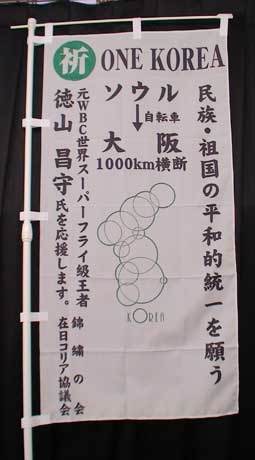 祈 ONE KOREA
民族・祖国の平和的統一を願う
ソウル
↓自転車
大阪
1000km横断
元WBC世界スーパーフライ級王者
徳山 昌守氏を応援します。
錦繍の会
在日コリア協議会
KOREA